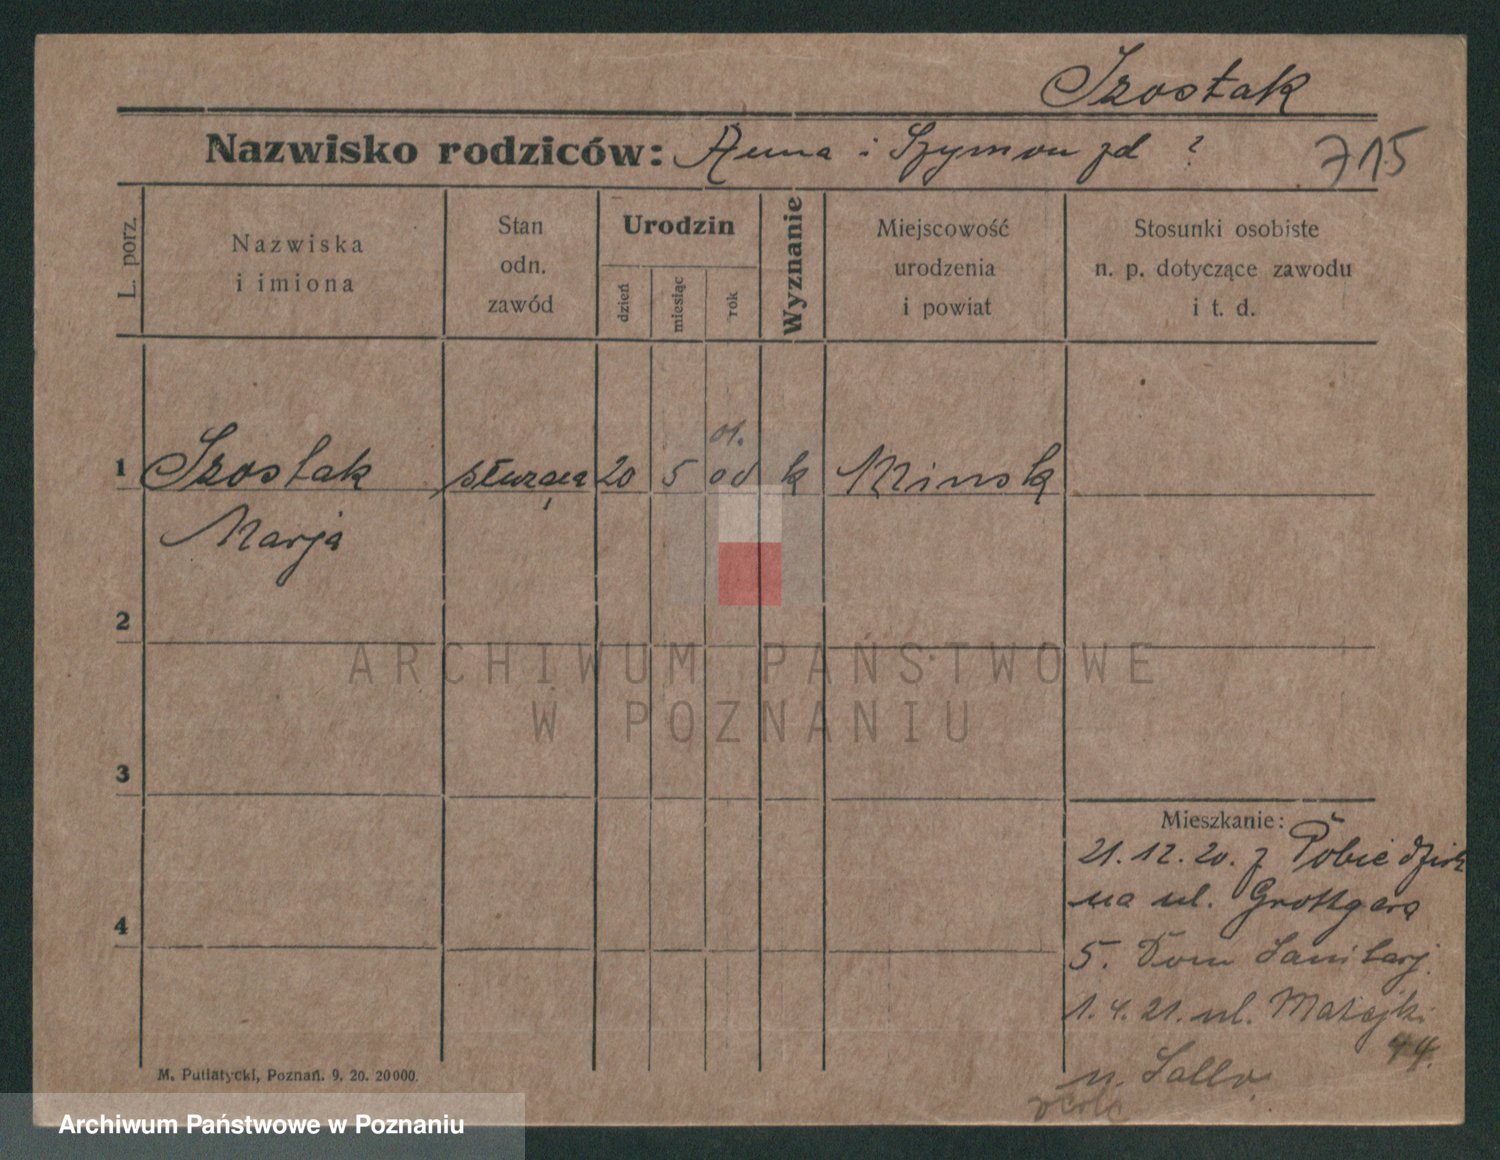 Szostak
Nazwisko rodziców: Anna i Szymon zd ?
715
L. porz.
Nazwiska
i imiona
Stan
odn.
zawód
Urodzin
dzień
miesiąc
rok
Wyznanie
Miejscowość
urodzenia
i powiat
Stosunki osobiste
n. p. dotyczące zawodu
i t. d.
01.
1 Szostak służąca 20 5 k Minsk
Marja
2
ARCHIWUM PAŃSTWOWE
W POZNANIU
3
Mieszkanie:
21.12.20. z Pobiedzisk
na ul. Grottgera
4
5. Dom Sanitarj.
1.4.21. ul. Matejki
44.
u.
M. Putiatycki, Poznań. 9. 20. 20000.
Archiwum Państwowe w Poznaniu